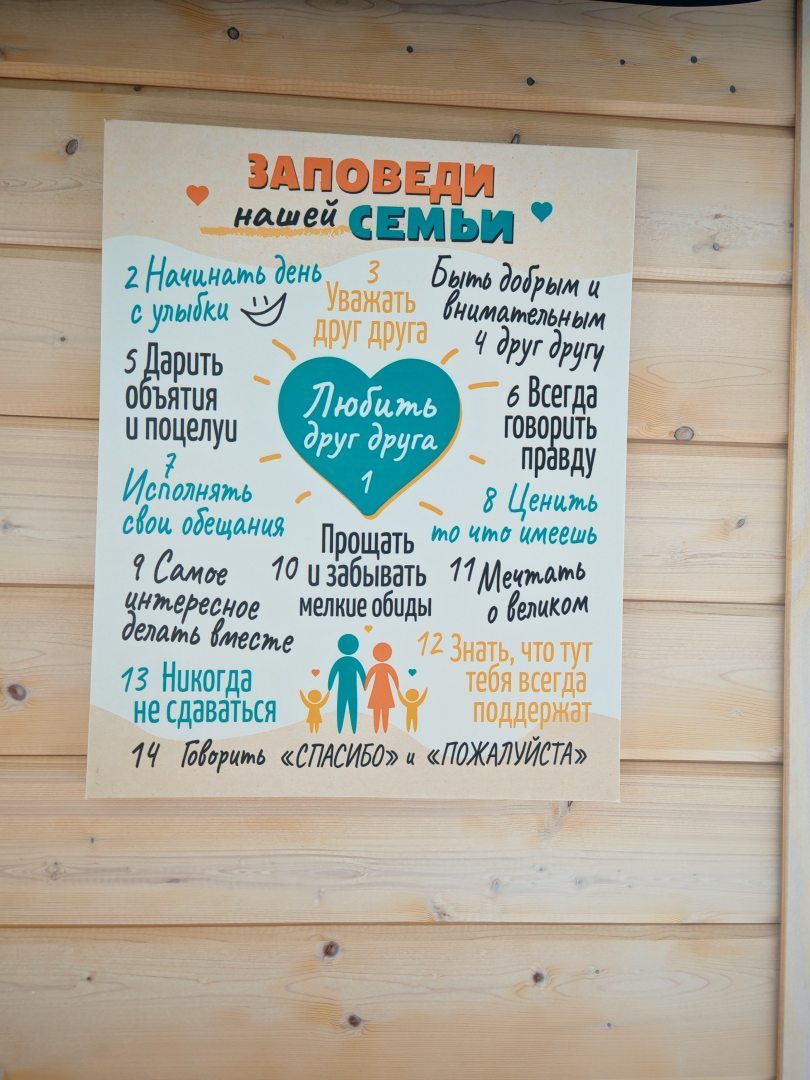 ЗАПОВЕДИ
нашей СЕМЬИ
2 Начинать день
с улыбки
3
Уважать
друг друга
Быть добрым и
внимательным
4 друг другу
5 Дарить
объятия
и поцелуи
Любить
друг друга
1
6 Всегда
говорить
правду
7
Исполнять
свои обещания
8 Ценить
то что имеешь
9 Самое
интересное
делать вместе
10 Прощать
и забывать
мелкие обиды
11 Мечтать
о великом
12 Знать, что тут
тебя всегда
поддержат
13 Никогда
не сдаваться
14 Говорить «СПАСИБО» и «ПОЖАЛУЙСТА»